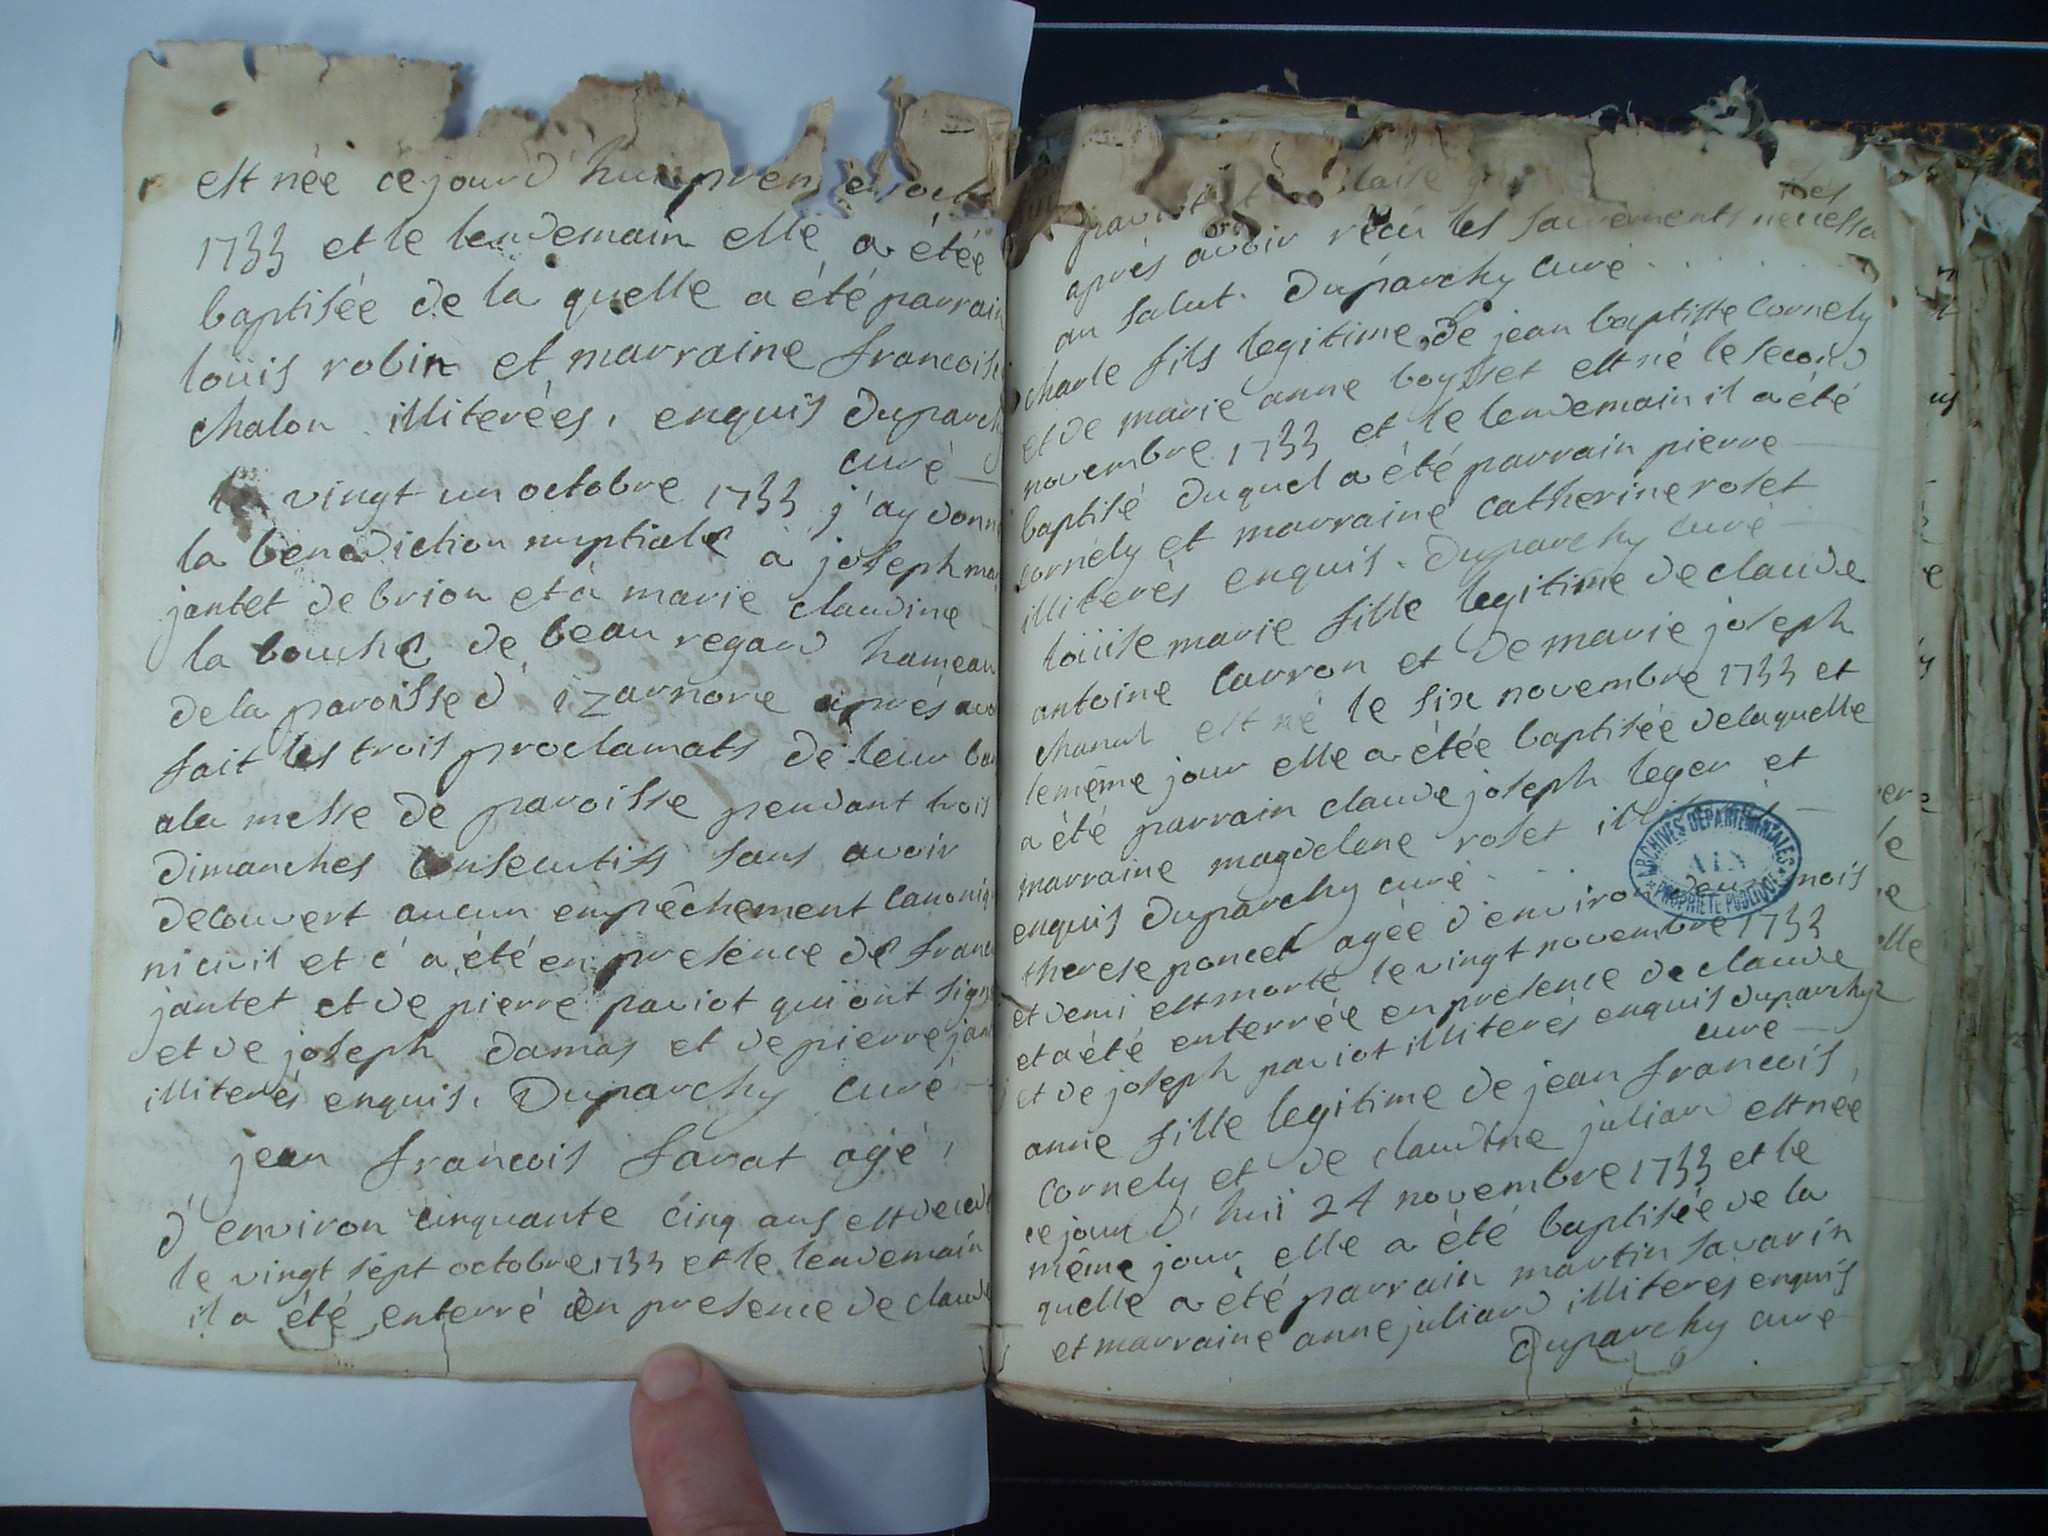 est née ce jourd'hui premier octo
1733 et le lendemain elle a étée
baptisée de la quelle a été parrain
louis robin et marraine francoise
chalon illiterées, enquis Duparch
curé
le vingt un octobre 1733 j'ay donn
la benediction nuptiale à joseph ma
jantet de brion et à marie claudine
la bouche de beau regard hameau
de la paroisse d'izarnore après avo
fait les trois proclamats de leur ban
a la messe de paroisse pendant trois
dimanches consecutifs sans avoir
decouvert aucun empêchement canoniq
ni civil et c'a été en presence de franc
jantet et de pierre paviot qui ont sign
et de joseph damas et de pierre jant
illiterés enquis. Duparchy curé
jean francois favat agé
d'environ cinquante cinq ans est decedé
le vingt sept octobre 1733 et le lendemain
il a été enterré en presence de claude
paviot et
après avoir recu les sacrements necessaires
au salut. Duparchy curé
charle fils legitime de jean baptiste Cornely
et de marie anne boysset est né le second
novembre 1733 et le lendemain il a été
baptisé duquel a été parrain pierre
cornely et marraine catherine roset
illiterés enquis. Duparchy curé
loüise marie fille legitime de claude
antoine carron et de marie joseph
chanut est né le six novembre 1733 et
le même jour elle a étée baptisée de laquelle
a été parrain claude joseph leger et
marraine magdelene roset
enquis Duparchy curé
ARCHIVES DEPARTEMENTALES
AIN
PROPRIETE PUBLIQUE
therese poncet agée d'environ deux mois
et demi est morte le vingt novembre 1733
et a été enterrée en presence de claude
et de joseph paviot illiterés enquis Duparchy
curé
anne fille legitime de jean francois
cornely et de claudine juliard est née
ce jourd'hui 24 novembre 1733 et le
même jour elle a été baptisée de la
quelle a été parrain martin savarin
et marraine anne juliard illiteres enquis
Duparchy curé